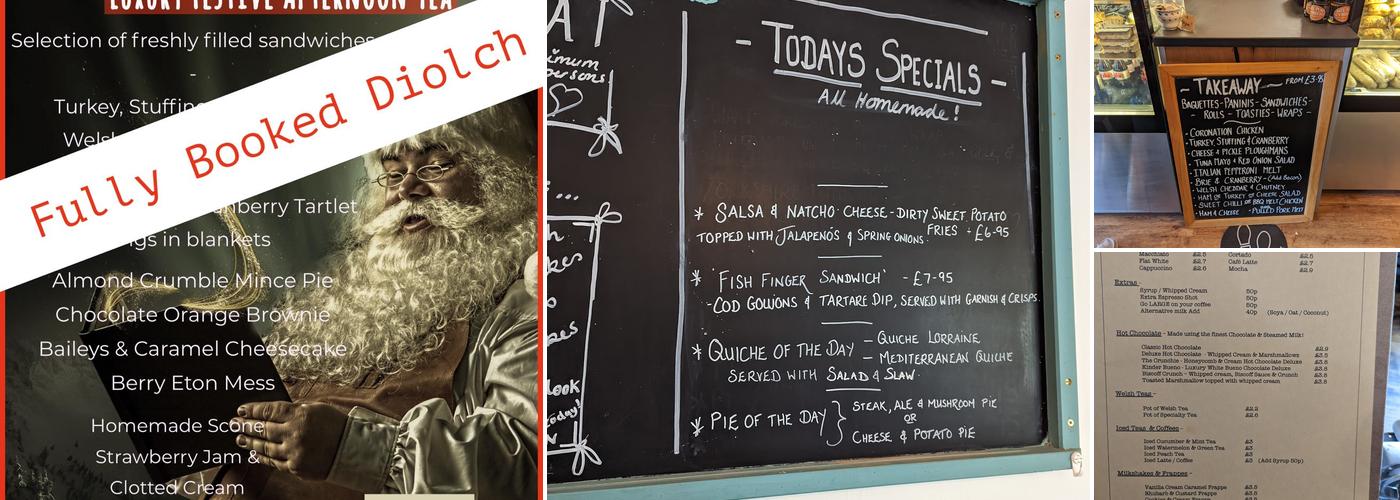 LUXURY FESTIVE AFTERNOON TEA
Selection of freshly filled sandwiches
-
Turkey, Stuffing
Fully Booked Diolch
Tartlet
in blankets
Almond Crumble Mince Pie
Chocolate Orange Brownie
Baileys & Caramel Cheesecake
Berry Eton Mess
Homemade Scone
Strawberry Jam &
Clotted Cream
- TODAYS SPECIALS -
All Homemade!
* SALSA & NATCHO CHEESE - DIRTY SWEET POTATO
FRIES - £6-95
TOPPED WITH JALAPENO'S & SPRING ONIONS.
* 'FISH FINGER SANDWICH' - £7-95
- COD GOUJONS & TARTARE DIP, SERVED WITH GARNISH & CRISPS.
* QUICHE OF THE DAY - QUICHE LORRAINE
- MEDITERRANEAN QUICHE
SERVED WITH SALAD & SLAW.
* PIE OF THE DAY } STEAK, ALE & MUSHROOM PIE
OR
CHEESE & POTATO PIE
- TAKEAWAY - FROM £3.95
BAGUETTES - PANINIS - SANDWICHES -
- ROLLS - TOASTIES - WRAPS -
- CORONATION CHICKEN
- TURKEY, STUFFING & CRANBERRY
- CHEESE & PICKLE PLOUGHMANS
- TUNA MAYO & RED ONION SALAD
- ITALIAN PEPPERONI MELT
- BRIE & CRANBERRY - (Add Bacon)
- WELSH CHEDDAR & CHUTNEY
- HAM OR TURKEY OR CHEESE SALAD
- SWEET CHILLI OR BBQ MELT CHICKEN
- HAM & CHEESE - PULLED PORK MELT
Macchiato £2.5 Cortado £2.5
Flat White £2.7 Café Latte £2.7
Cappuccino £2.6 Mocha £2.9
Extras -
Syrup / Whipped Cream 50p
Extra Espresso Shot 50p
Go LARGE on your coffee 50p
Alternative milk Add 40p (Soya / Oat / Coconut)
Hot Chocolate - Made using the finest Chocolate & Steamed Milk!
Classic Hot Chocolate £2.9
Deluxe Hot Chocolate - Whipped Cream & Marshmallows £3.5
The Crunchie - Honeycomb & Cream Hot Chocolate Deluxe £3.8
Kinder Bueno - Luxury White Bueno Chocolate Deluxe £3.8
Biscoff Crunch - Whipped cream, Biscoff Sauce & Crunch £3.8
Toasted Marshmallow topped with whipped cream £3.8
Welsh Teas -
Pot of Welsh Tea £2.2
Pot of Specialty Tea £2.6
Iced Teas & Coffees -
Iced Cucumber & Mint Tea £3
Iced Watermelon & Green Tea £3
Iced Peach Tea £3
Iced Latte / Coffee £3 (Add Syrup 50p)
Milkshakes & Frappes -
Vanilla Cream Caramel Frappe £3.5
Rhubarb & Custard Frappe £3.5